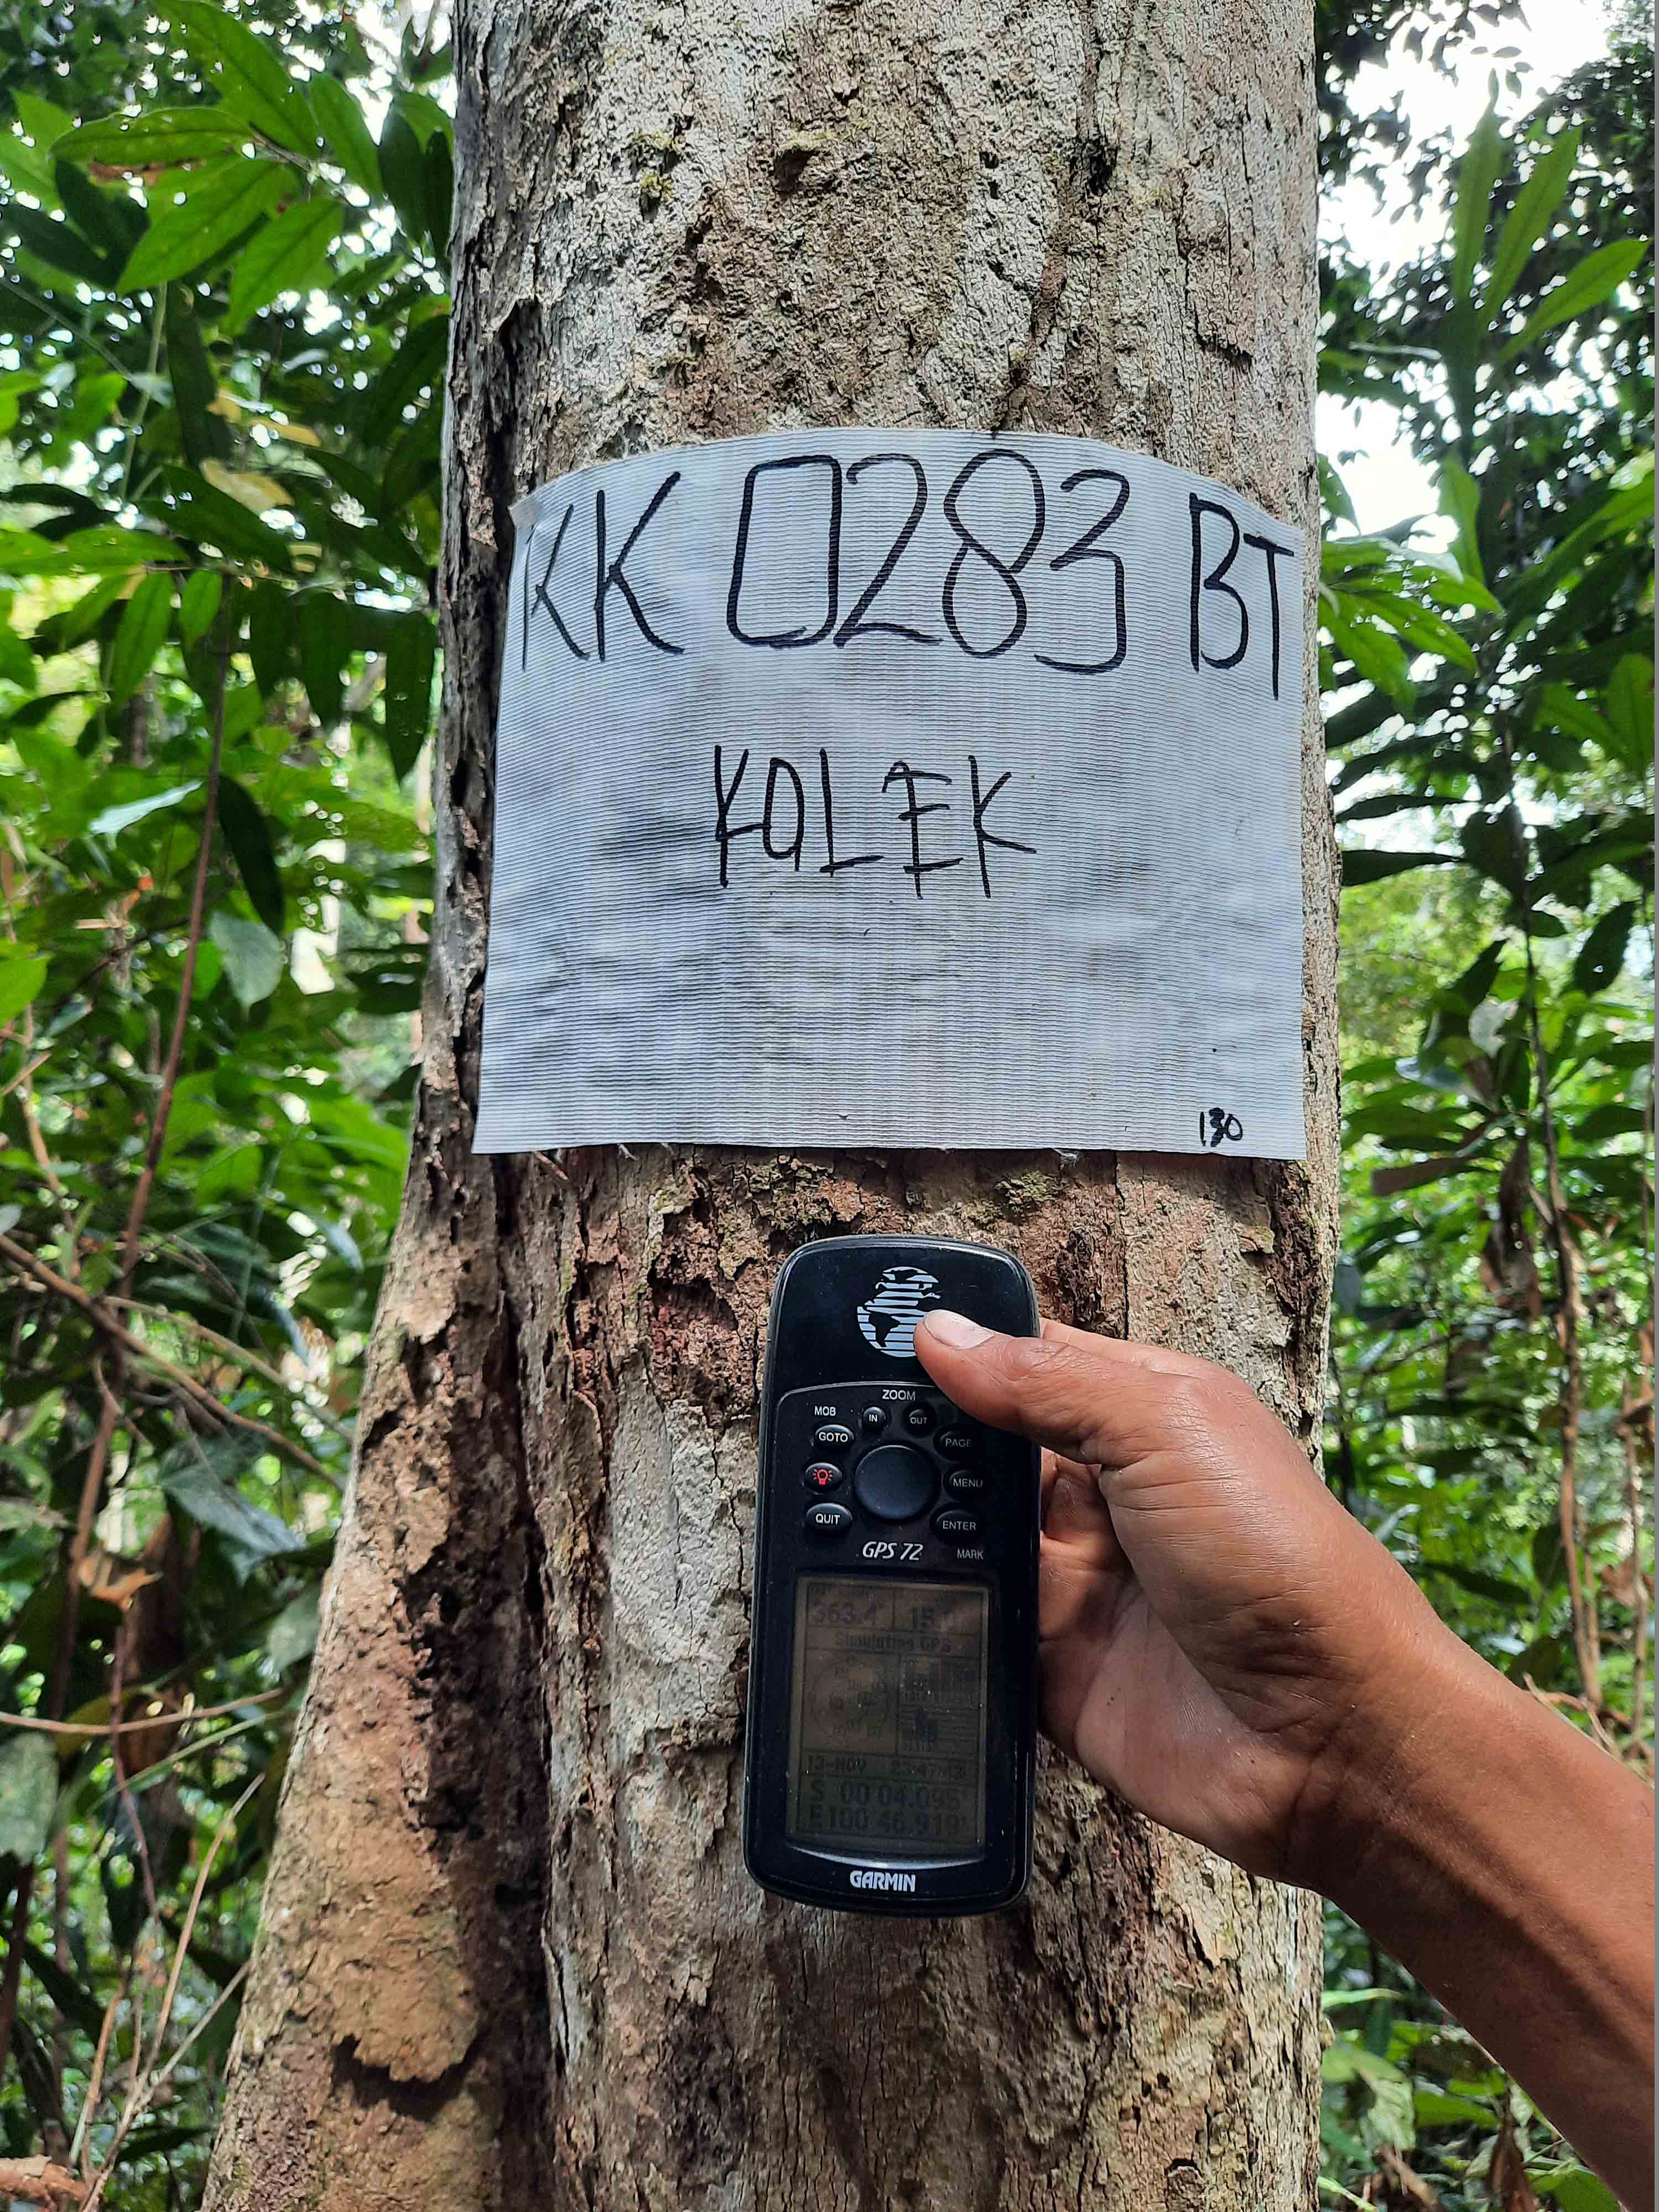 KK 0283 BT
KOLEK
130
ZOOM
MOB IN OUT
GOTO PAGE
MENU
QUIT ENTER
GPS 72 MARK
Simulating GPS
13-NOV
S 00 04.095'
E100 46.919'
GARMIN